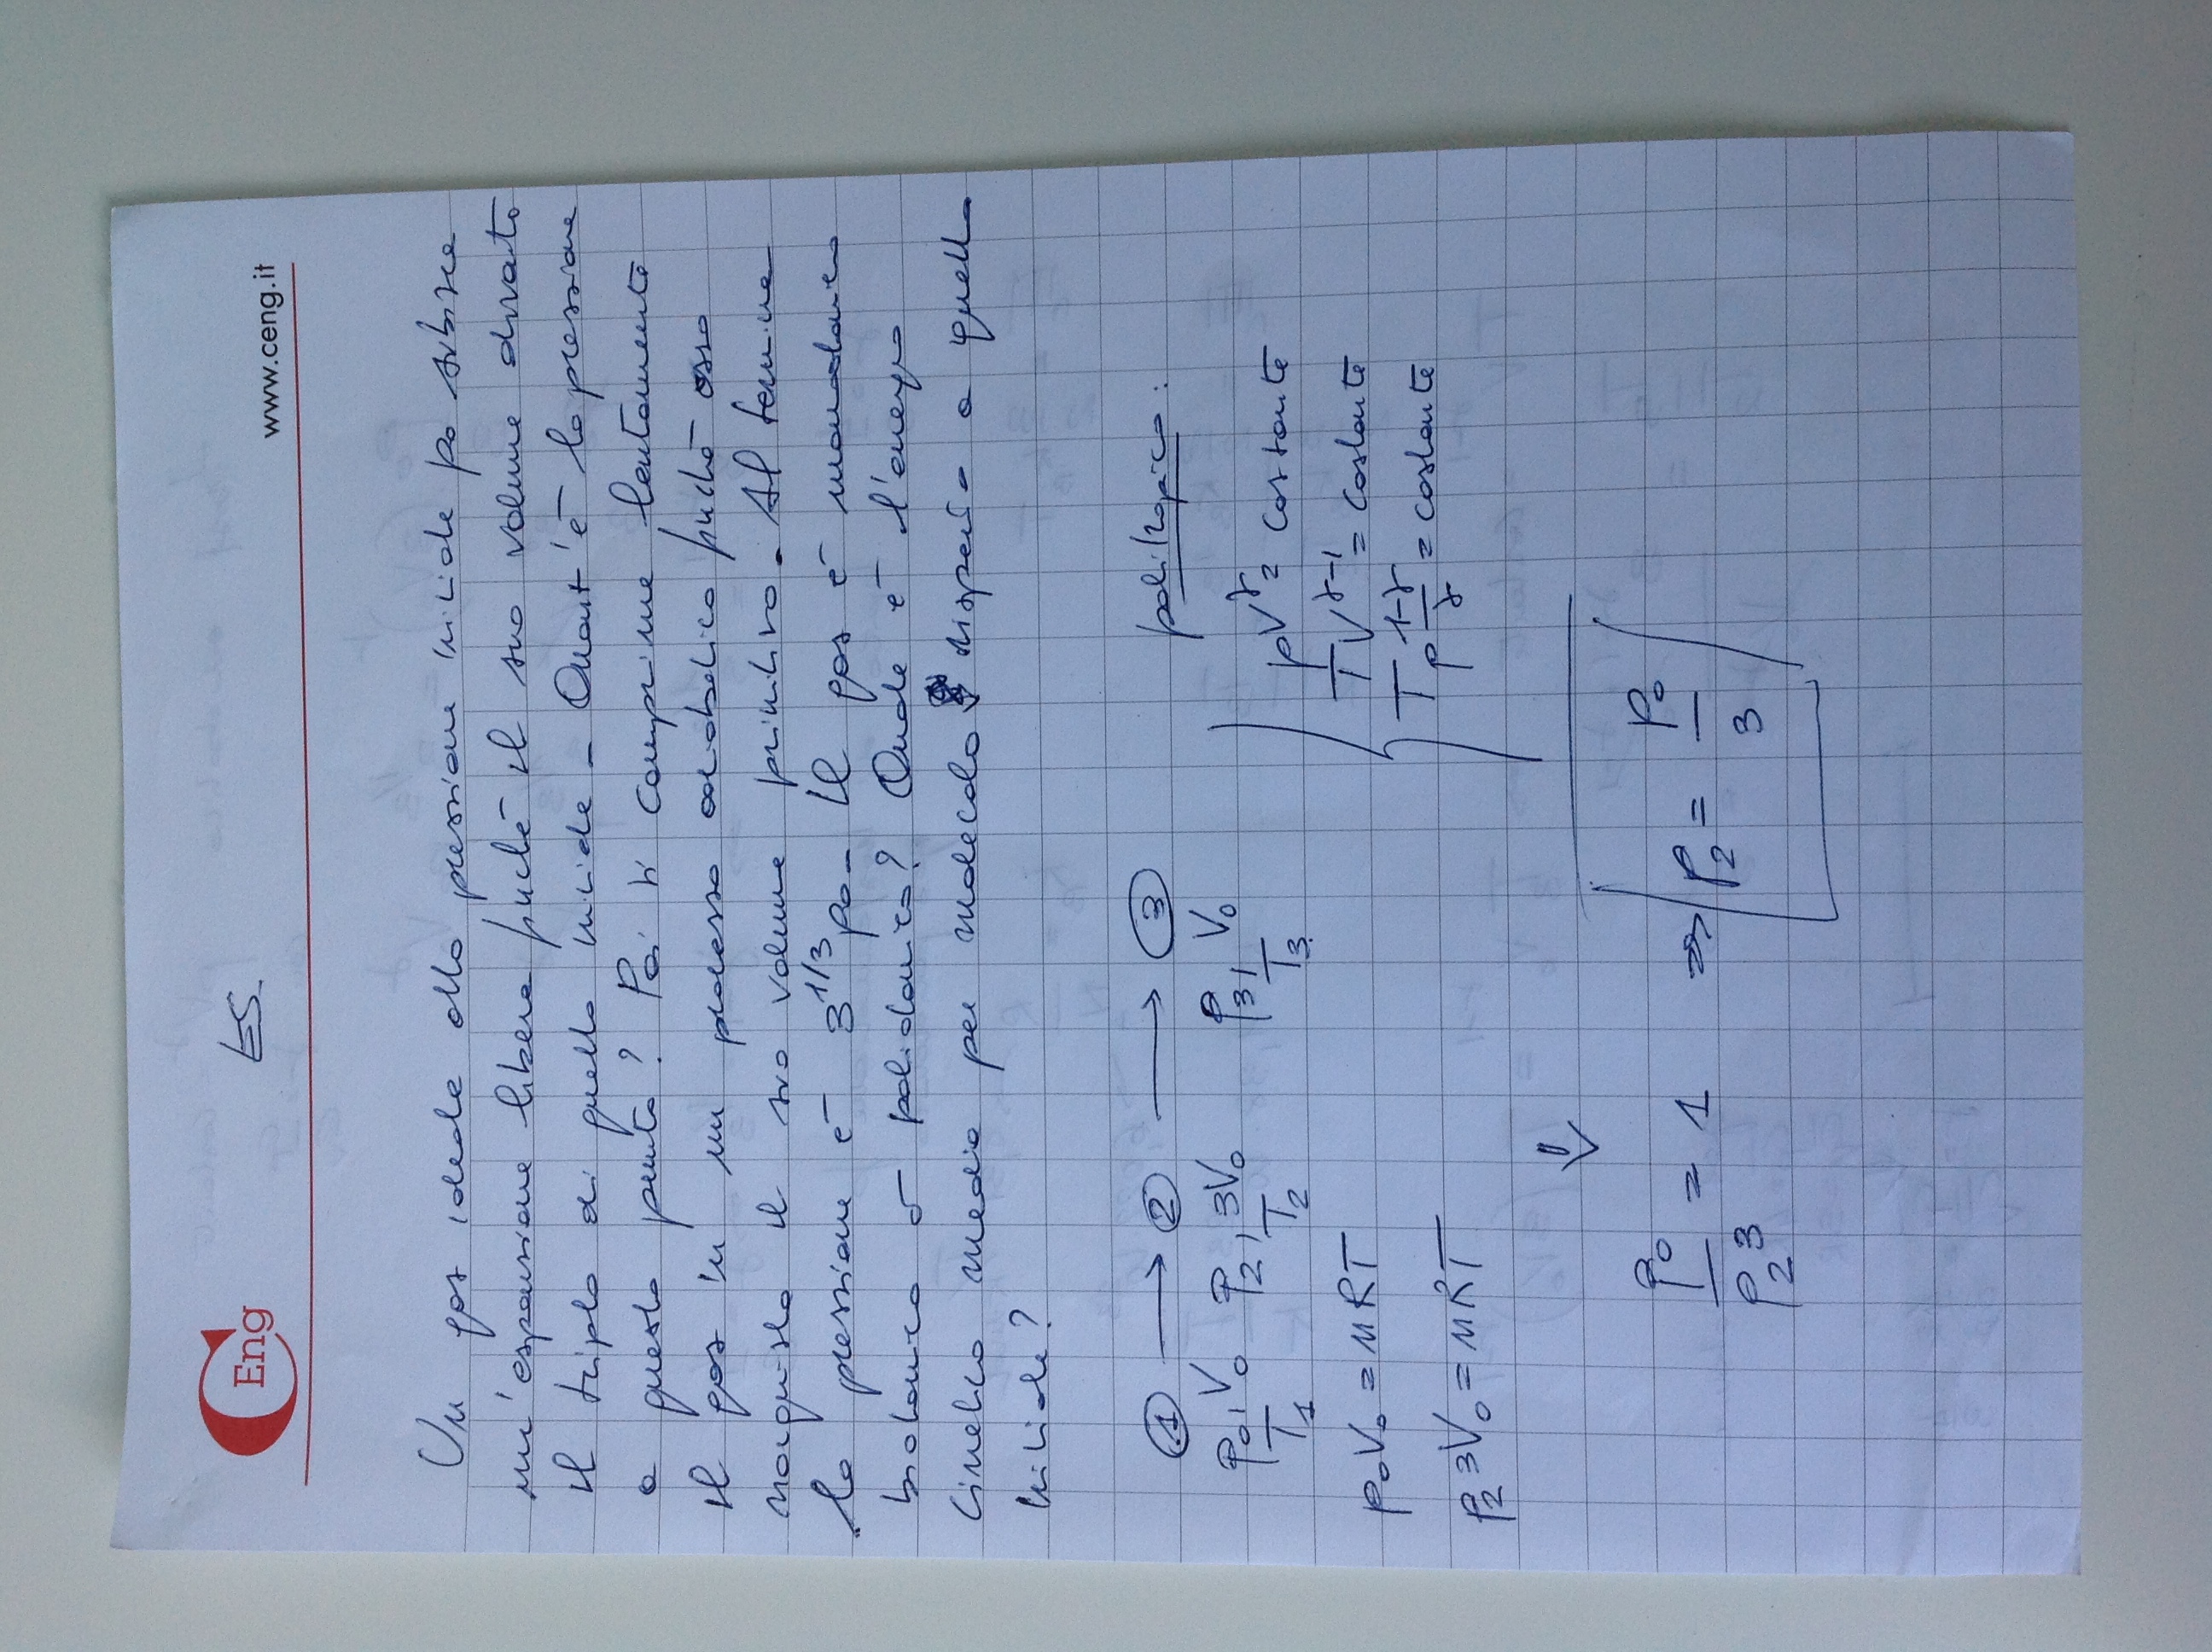 C Eng
ES
www.ceng.it
Un gas ideale alla pressione iniziale po subisce
un'espansione libera finché il suo volume diventa
il triplo di quello iniziale - Quant'è la pressione
a questo punto? Poi si comprime lentamente
il gas in un processo adiabatico finché esso
riacquista il suo volume primitivo. Al termine
la pressione è 3^1/3 po - Il gas è monoatomico
biatomico o poliatomico? Quale è l'energia
cinetica media per molecola rispetto a quella
iniziale?
1 → 2 → 3
politropica:
p0, V0 p2, 3V0 p3, V0
T1 T2 T3
pV^γ = costante
TV^γ-1 = costante
Tp^(1-γ)/γ = costante
p0V0 = nRT
p2 3V0 = nRT
⇓
p0/(p2 3) = 1 ⇒ p2 = p0/3